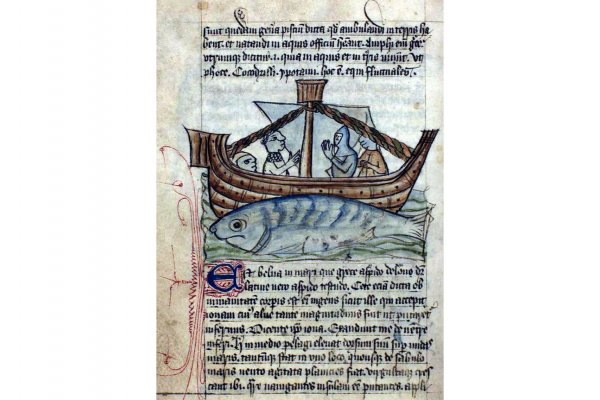 sunt quedam gen̄a pisciū dicta qd̄ ambulandi in terris ha
bent. et natandi in aquis officiū h̄eant. Amphi em̄ grece
utrumque dicitur .i. quia in aquis et in t̄ris uiuūt. ut
phoce. Cocodrilli. ypotami. hoc ē. equi fluctuales.
Est belua in mari que grece aspido delone dr̄
latine uero aspido testudo. Cete eciā dicta ob
inmanitatē corporis est em̄ ingens sicut ille qui accepit
ionam cuiꝰ aluꝰ tante magnitudinis fuit ut putaret̄
infernus. Dicente ip̄o iona. Exaudiuit me de uentre
inferi. h̄ in medio pelagi eleuat dorsum suū sup̄ undas
maris. tantūque stat in uno loco. quousque de sabulo
maris uento agitata planicies fiat. uirgultaque cres
cant ibi. nauigantes insulam eē putantes. appli